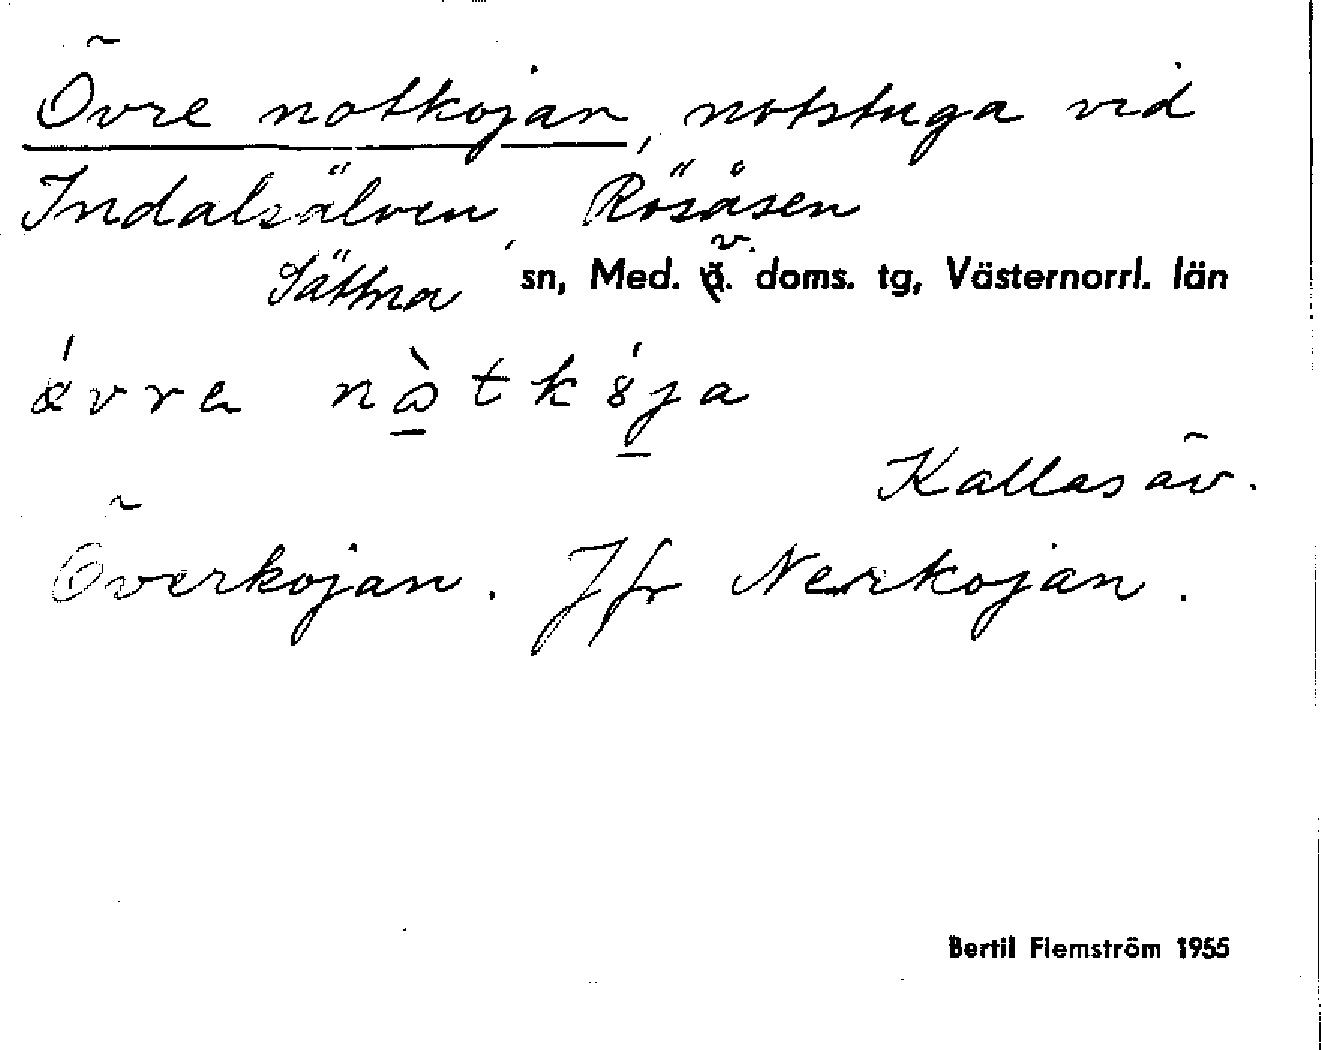 Övre notkojan, notstuga vid
Indalsälven, Rösåsen
Sättna sn, Med. v. doms. tg, Västernorrl. län
Kallas äv.
Överkojan. Jfr Nerkojan.
Bertil Flemström 1955